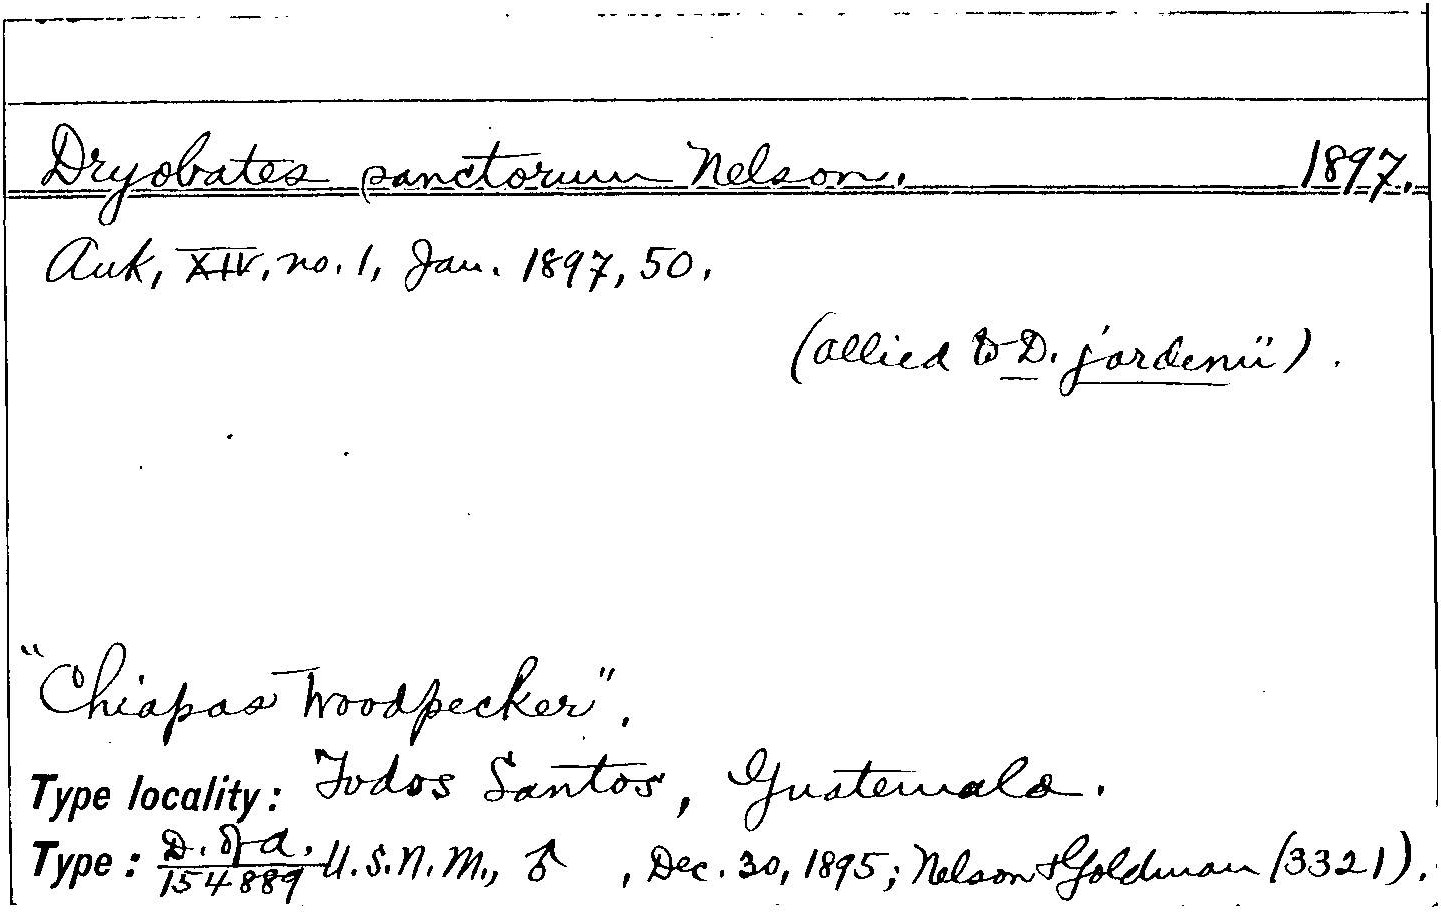 Dryobates sanctorum Nelson. 1897.
Auk, XIV, no. 1, Jan. 1897, 50.
(allied to D. jardenii).
"Chiapas Woodpecker".
Type locality: Todos Santos, Guatemala.
Type: D. of A. / 154889 U.S.N.M., ♂, Dec. 30, 1895; Nelson & Goldman (3321).